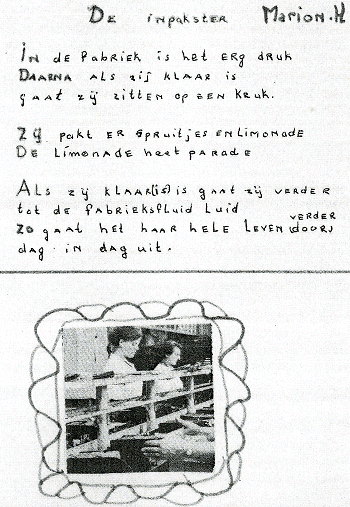 De inpakster Marion.H
In de fabriek is het erg druk
Daarna als zij klaar is
gaat zij zitten op een kruk.
Zij pakt er spruitjes en limonade
De limonade heet parade
Als zij klaar (is) is gaat zij verder
tot de fabrieksfluid luid
verder
zo gaat het haar hele leven (door)
dag in dag uit.